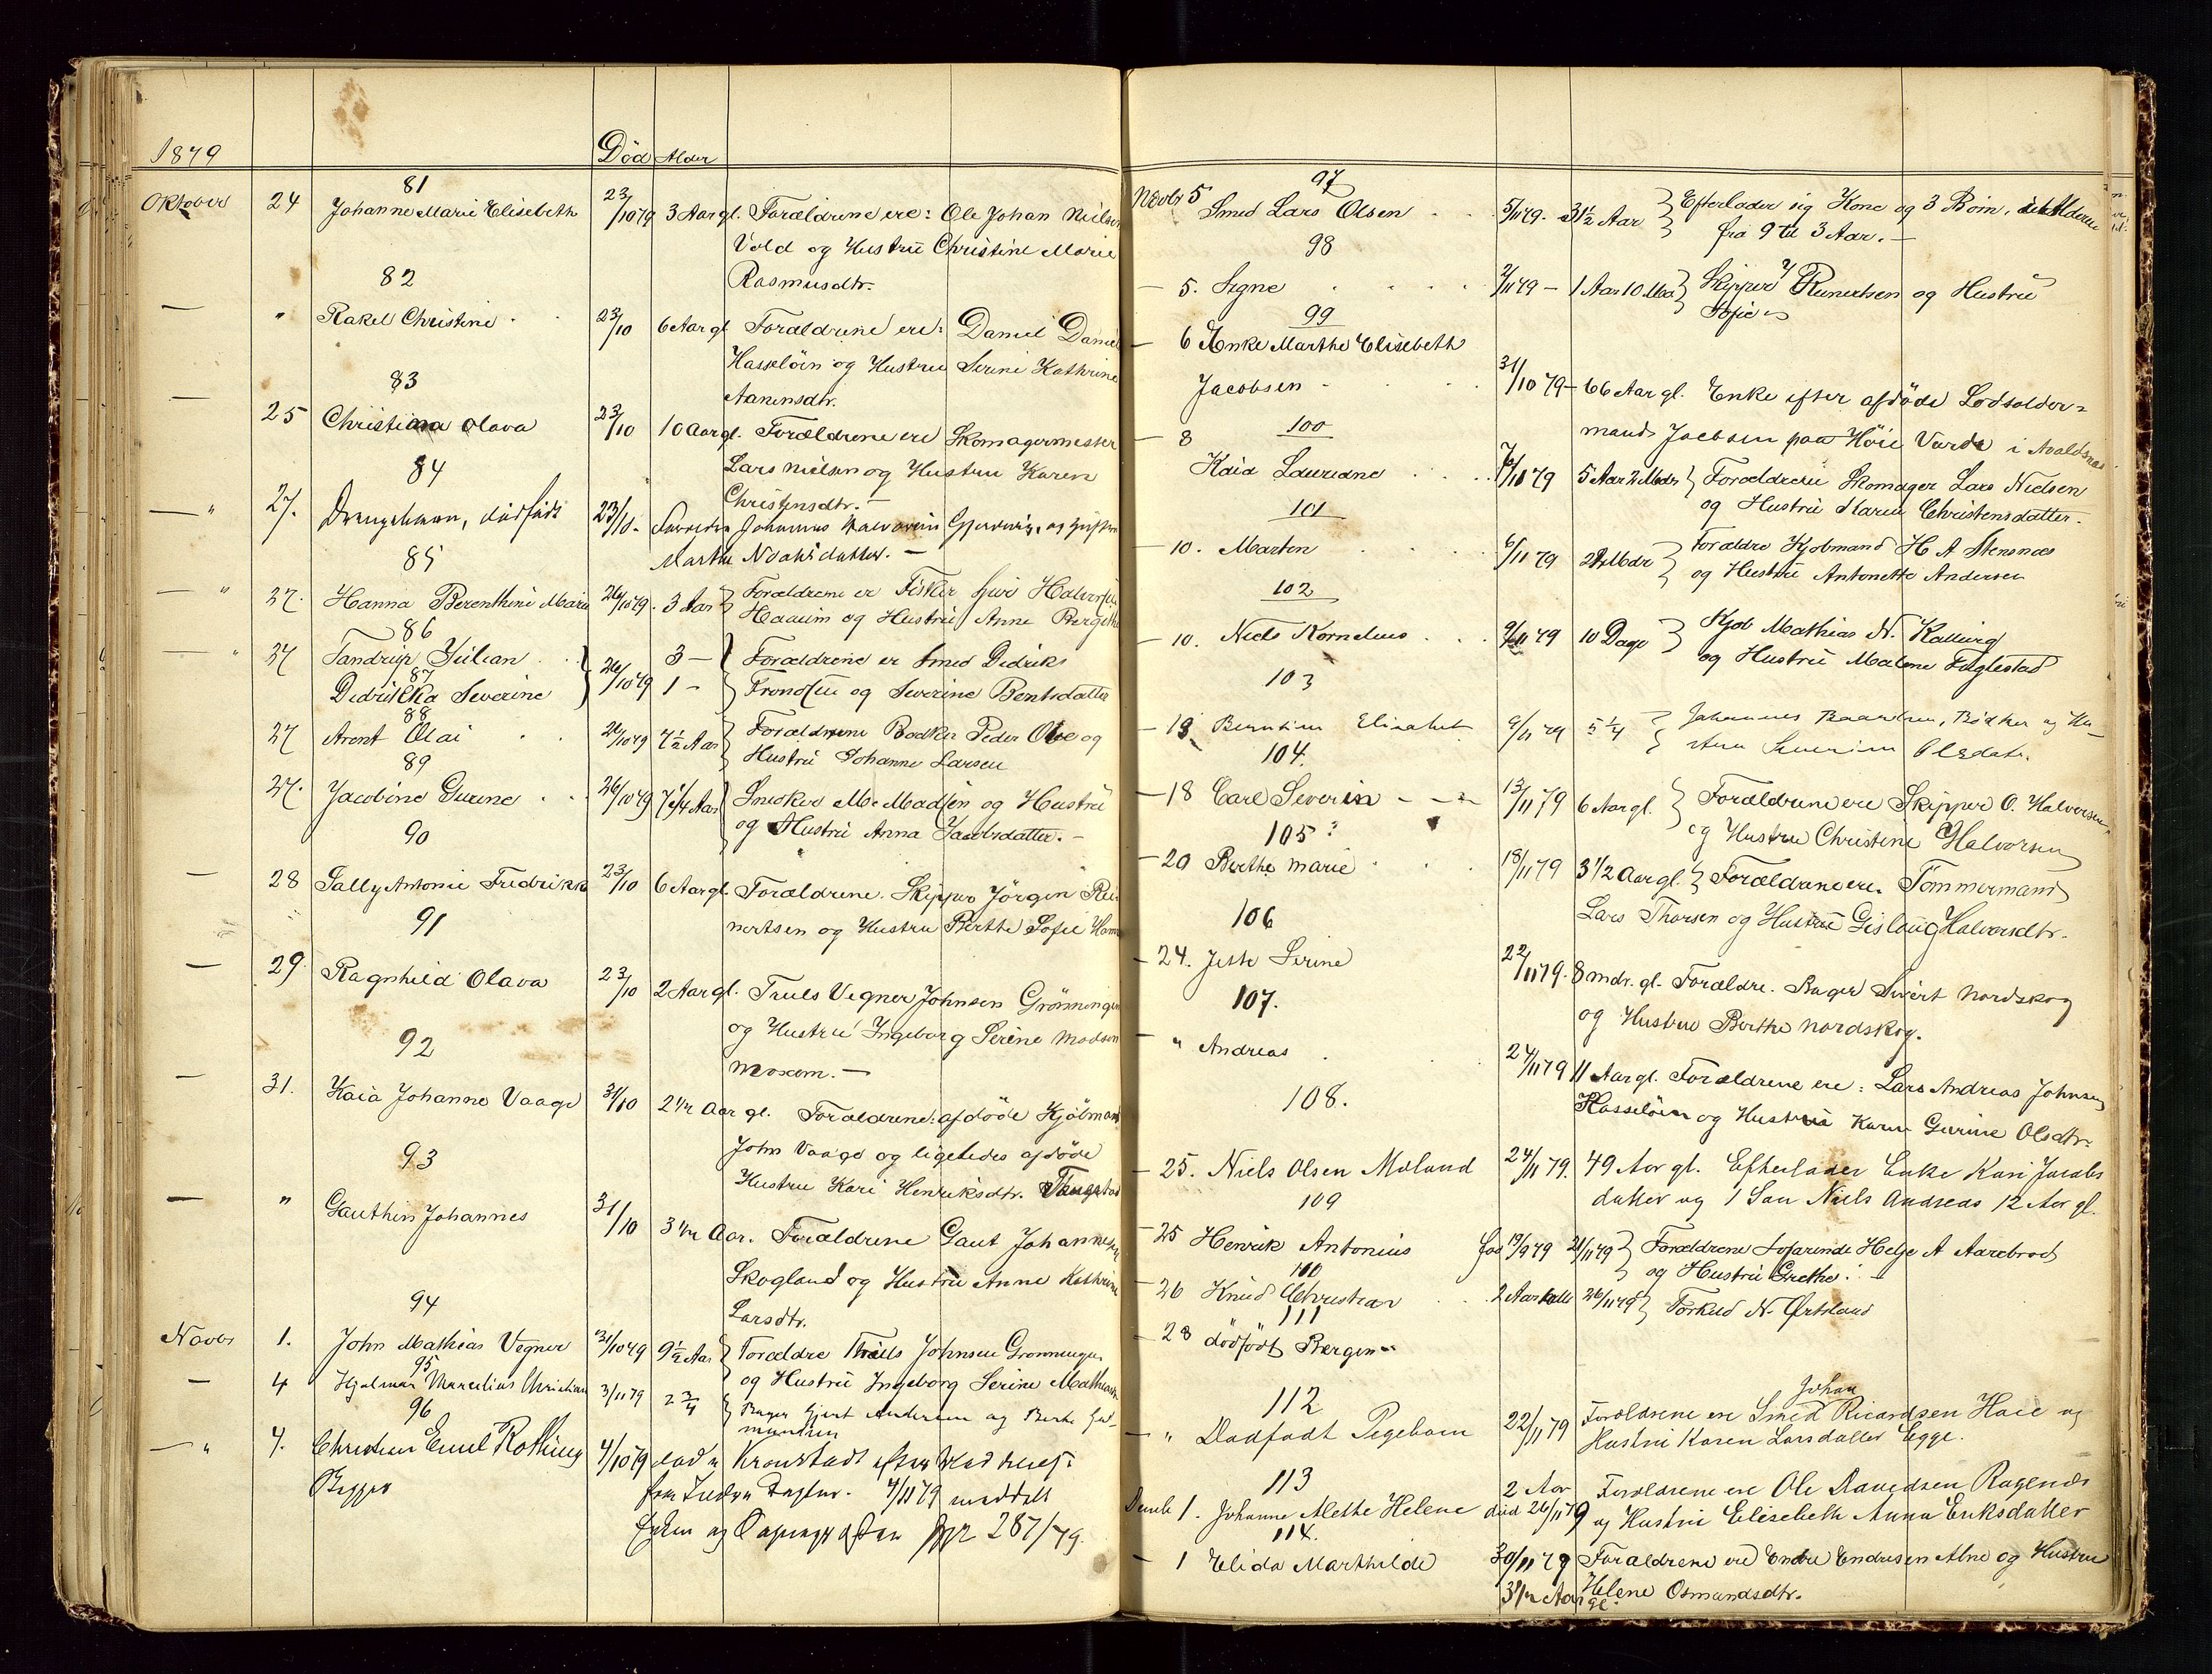 1879
Död Alder
81
Oktober 24 Johanne Marie Elisebeth 23/10 79 3 Aar gl. Forældrene ere: Ole Johan Nielsen
Vold og Hustru Christine Marie
Rasmusdtr.
82
— " Rakel Christine 23/10 6 Aar gl. Forældrene ere: Daniel Daniel
Hasseløen og Hustru Serine Kathrine
Aanensdtr.
83
— 25 Christiana Olava 23/10 10 Aar gl. Forældrene ere Skomagermester
Lars Nielsen og Hustru Karen
Christensdtr. —
84
— " 27. Drengebarn, dødfødt 23/10. Forældre Johannes
Marthe Noahsdatter. —
85
— " 27. Hanna Berenthine Marie 26/10 79. 3 Aar Forældrene er Fisker Halvorsen
og Hustru Anne Bergithe
86
— " 27 Tandrup Julian 3 — Forældrene er Smed Didriks
87
Didrikka Severine 26/10 79 1 — og Severine Bentsdatter
88
27 Arent Olai 26/10 79 7 1/2 Aar Forældrene Bødker Peder Olsen og
Hustru Johanne Larsen
89
27. Jacobine Gurine 26/10 79 7 1/4 Aar Snedker M. Madsen og Hustru
og Hustru Anna Jacobsdatter. —
90
— 28 Sally Antonie Fredrikke 23/10 6 Aar gl. Forældrene. Skipper Jörgen Rei-
nertsen og Hustru Berthe Sofie
91
— 29 Ragnhild Olava 23/10 2 Aar gl. Truls Vegner Johnsen Grönningen
og Hustru Ingeborg Serine Madsen
92
— 31. Kaia Johanne Vaage 31/10 2 1/2 Aar gl. Forældrene: afdöde Kjöbmand
John Vaage og ligeledes afdöde
Hustru Kari Henriksdtr.
93
— " Gauthin Johannes 31/10 3 1/2 Aar. Forældrene Gaut Johannesen
Skogland og Hustru Anne Kathrine
Larsdtr.
94
Novbr 1. John Mathias Vegner 31/10 79 9 1/2 Aar Forældre Truls Johnsen Grönningen
og Hustru Ingeborg Serine
95
— 4 Hjalmar Marcelius Christian 3/11 79 2 3/4 Bager Gjert Andersen og Berthe
96
— " 4. Christian Emil Rothing 4/10 79 död i Kronstadt efter
4/11 79 meddelt
287/79.
97
Novbr 5 Smed Lars Olsen 5/11 79. 31 1/2 Aar Efterlader sig Kone og 3 Börn, i Alderen
fra 9 til 3 Aar. —
98
— 5. Signe 2/11 79 — 1 Aar 10 Mdr Skipper J Reinertsen og Hustru
Sofie
99
— 6 Enke Marthe Elisebeth
Jacobsen 31/10 79 — 66 Aar gl. Enke efter afdöde Lodsolder-
mand Jacobsen paa Höie Varde i Avaldsnes
100
— 8 Kaia Lauriane 7/11 79 5 Aar 2 Mdr Forældrene Skomager Lars Nielsen
og Hustru Karen Christensdatter.
101
— 10. Marten 6/11 79 Mdr Forældre Kjobmand H A Stensnæs
og Hustru Antonette Andersen
102
— 10. Niels Kornelius 9/11 79 10 Dage Kjøb Mathias N. Kallevig
og Hustru Malene Fuglestad
103
— 13 Berntine Elisabet 9/11 79 5 1/4 Johannes Baardsen, Bödker og Hu-
stru Severine Olsdatr.
104.
— 18 Carl Severin 13/11 79 6 Aar gl. Forældrene ere Skipper O. Halvorsen
og Hustru Christine Halvorsen
105
— 20 Berthe Marie 18/11 79 3 1/2 Aar gl. Forældrene ere. Tömmermand
Lars Thorsen og Hustru Gislaug Halvorsdtr.
106
— 24. Jette Serine 22/11 79. 8 mdr. gl. Forældre. Bager Sivert Nordskog
og Hustru Berthe Nordskog.
107.
" Andreas 24/11 79 11 Aar gl. Forældrene ere: Lars Andreas Johnsen
Hasselöen og Hustru Karen Gurine Olsdtr.
108.
— 25. Niels Olsen Moland 24/11 79. 49 Aar gl. Efterlader Enke Kari Jacobs
datter og 1 Søn Niels Andreas 12 Aar gl.
109
— 25 Henrik Antonius fød 19/9 79 21/11 79 Forældrene Sofarende Helge A Aarebrot
og Hustru Grethe. —
110
— 26 Knud Christian 2 Aar 26/11 79 Torkild N. Ørtsland
111
— 28 dödfödt Bergen
112
— " Dødfødt Pigebarn 22/11 79 Forældrene ere Smed Johan Ricardsen Haie og
Hustru Karen Larsdatter Egge.
113
Decmb 1. Johanne Mette Helene 2 Aar död 26/11 79 Forældrene ere Ole Davidsen Ragenæs
og Hustru Elisebeth Anna Eriksdatter
114.
— 1 Elida Marthilde 30/11 79 Forældrene ere Endre Endresen Alne og Hustru
3 1/2 Aar gl. Helene Osmundsdtr.